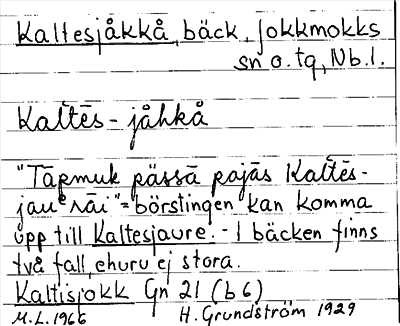 Kaltesjåkkå, bäck, Jokkmokks
sn o. tg, Nb.l.
Kaltēs-jåhkå
"Tāpmuk pässā pajās Kaltēs-
jauᵉrāi" = "börstingen kan komma
upp till Kaltesjaure. - I bäcken finns
två fall, ehuru ej stora.
Kaltisjokk Gn 21 (b6)
M.L. 1966 H. Grundström 1929